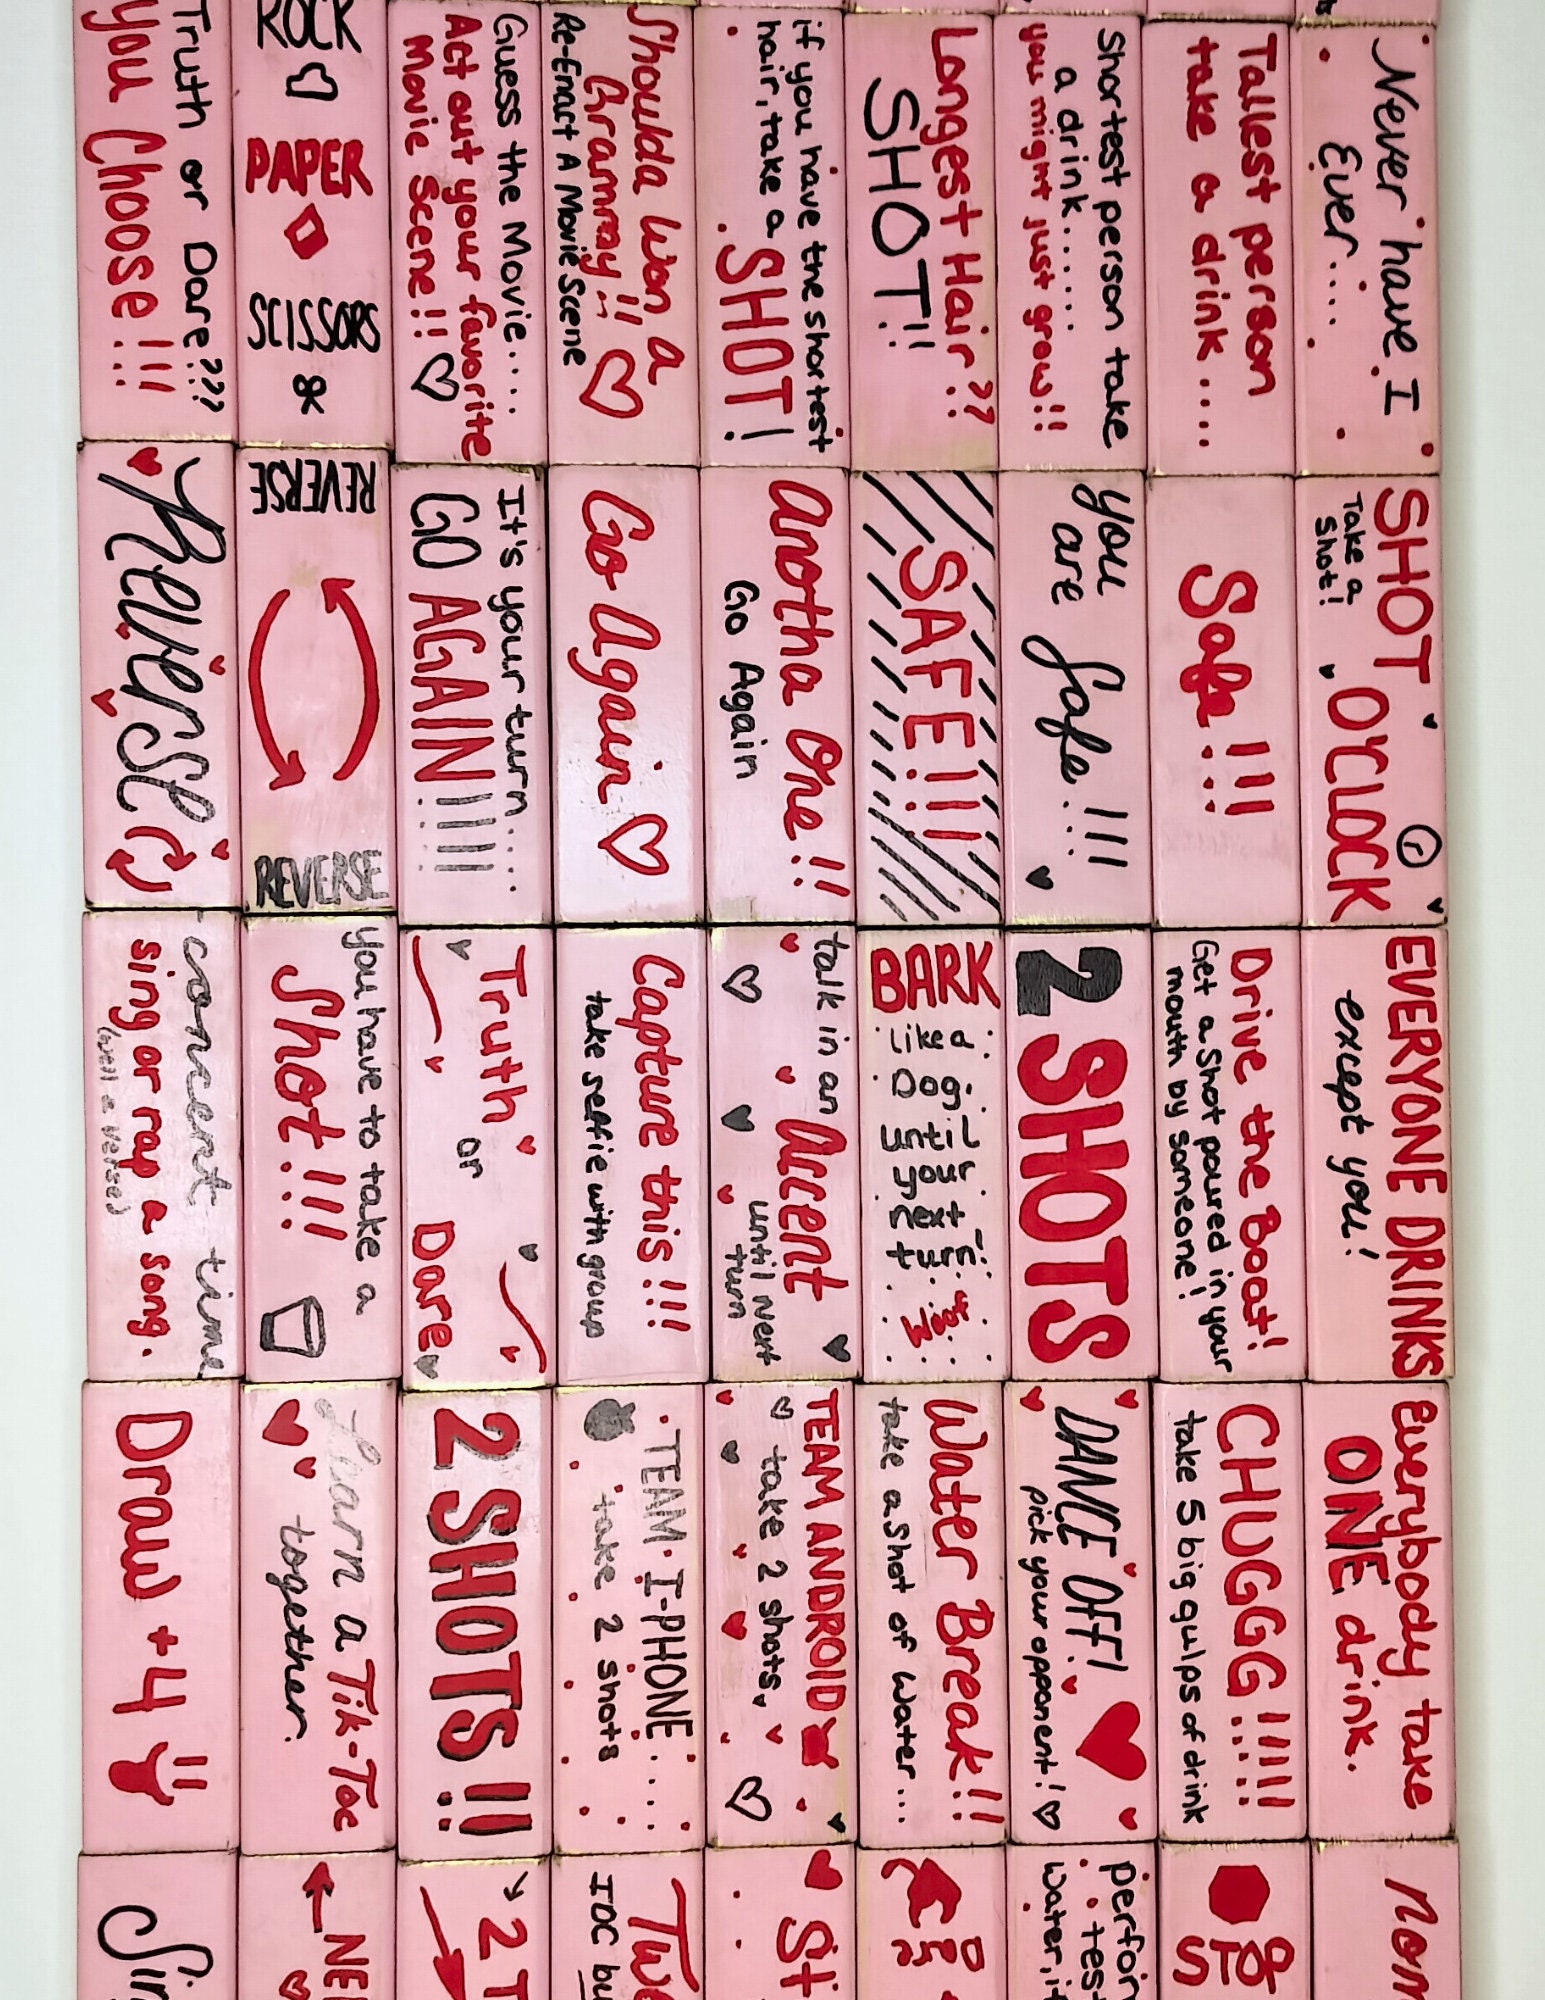 Never have I
Ever....
SHOT O'CLOCK
Take a
Shot!
EVERYONE DRINKS
except you!
Everybody take
ONE drink.
Tallest person
take a drink....
Safe!!!
Drive the Boat!
Get a Shot poured in your
mouth by someone!
CHUGGG!!!!!
take 5 big gulps of drink
STOP
Shortest person take
a drink......
you might just grow!!
you
are Safe!!!
2 SHOTS
DANCE OFF!
pick your opponent!
Longest Hair??
SHOT!!
SAFE!!!
BARK
Like a
Dog
until
your
next
turn!
Water Break!!
take a shot of water...
if you have the shortest
hair, take a SHOT!
Anotha One!!
Go Again
talk in an Accent
until next
turn
TEAM ANDROID
take 2 shots
Shoulda Won a
Grammy!!
Re-Enact A Movie Scene
Go Again
Capture this!!!
take selfie with group
TEAM I-PHONE....
take 2 shots
IDC
Guess the Movie....
Act out your favorite
Movie Scene!!
It's your turn....
GO AGAIN!!!!!
Truth
or
Dare
2 SHOTS!!
2
ROCK
PAPER
SCISSORS
REVERSE
REVERSE
you have to take a
Shot!!!
Learn a Tik-Toc
together.
Truth or Dare???
you Choose!!!
Reverse
concert time
sing or rap a song.
(well a verse)
Draw +4